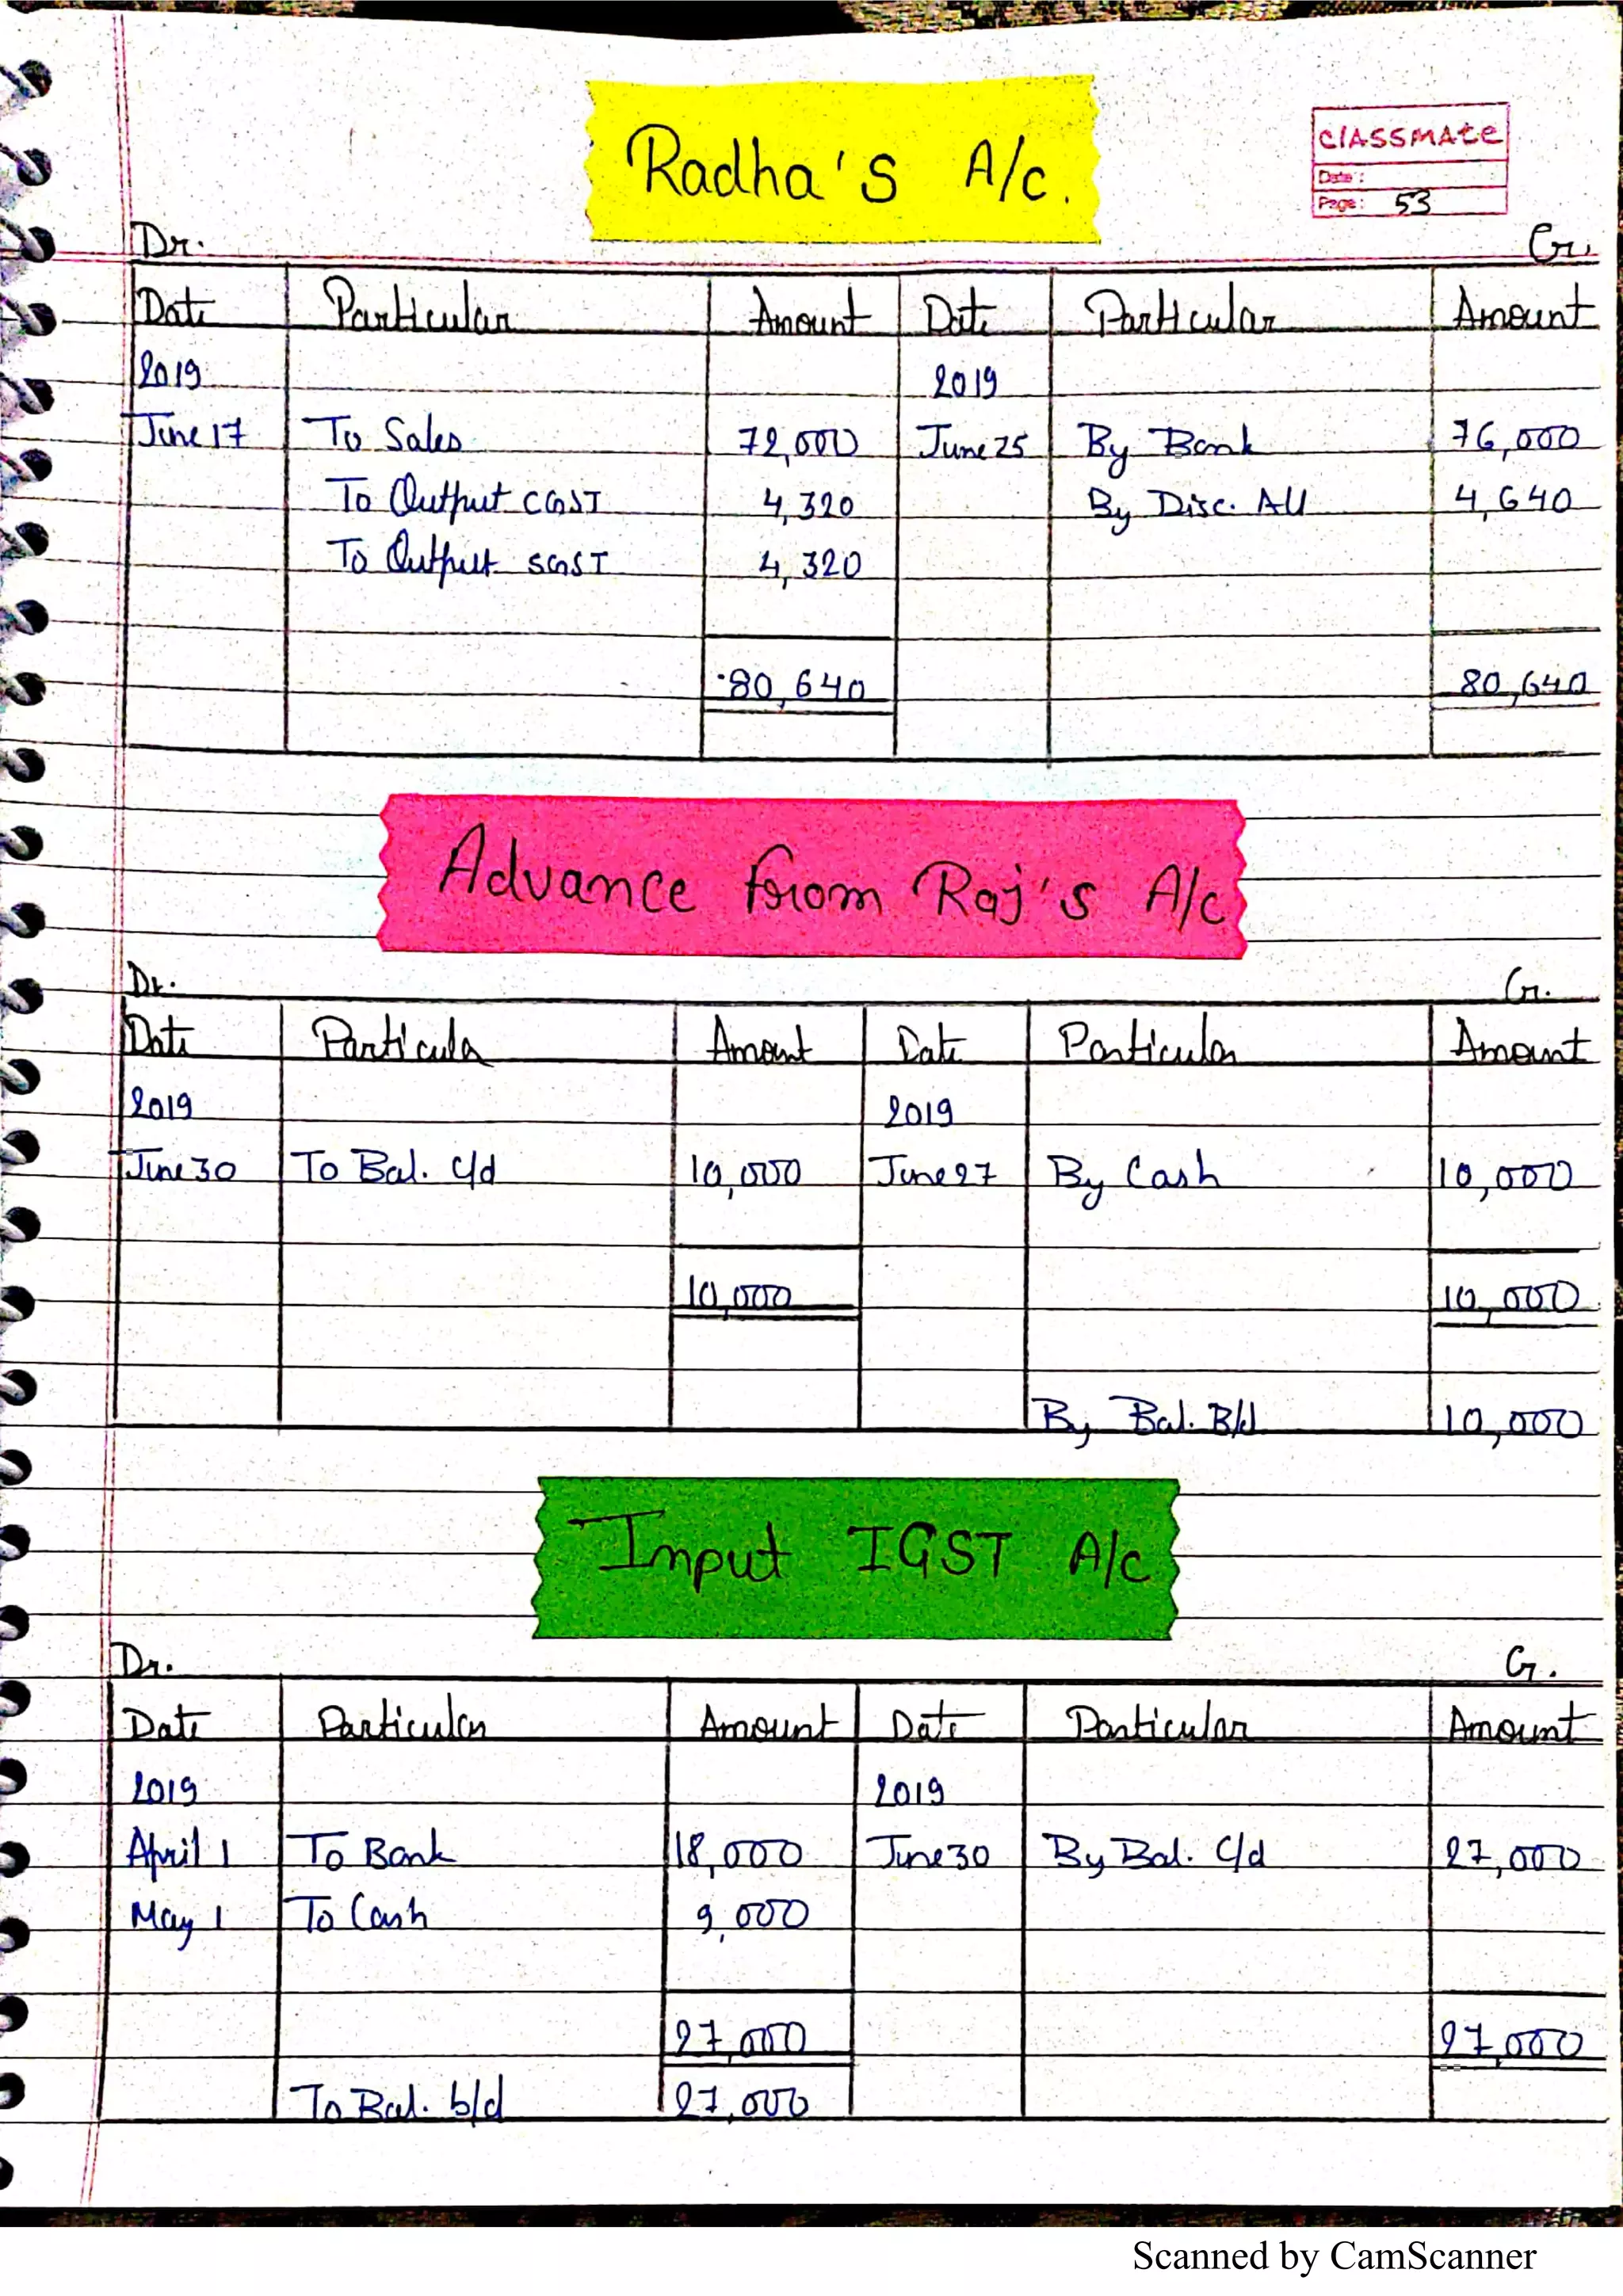 Radha's A/c.
classmate
Date:
Page: 53
Dr. Cr.
Date Particular Amount Date Particular Amount
2019 2019
June 17 To Sales 72,000 June 25 By Bank 76,000
To Output CGST 4,320 By Disc. All 4,640
To Output SGST 4,320
80,640 80,640
Advance from Raj's A/c
Dr. Cr.
Date Particular Amount Date Particular Amount
2019 2019
June 30 To Bal. c/d 10,000 June 27 By Cash 10,000
10,000 10,000
By Bal. B/d 10,000
Input IGST A/c
Dr. Cr.
Date Particular Amount Date Particular Amount
2019 2019
April 1 To Bank 18,000 June 30 By Bal. C/d 27,000
May 1 To Cash 9,000
27,000 27,000
To Bal. b/d 27,000
Scanned by CamScanner